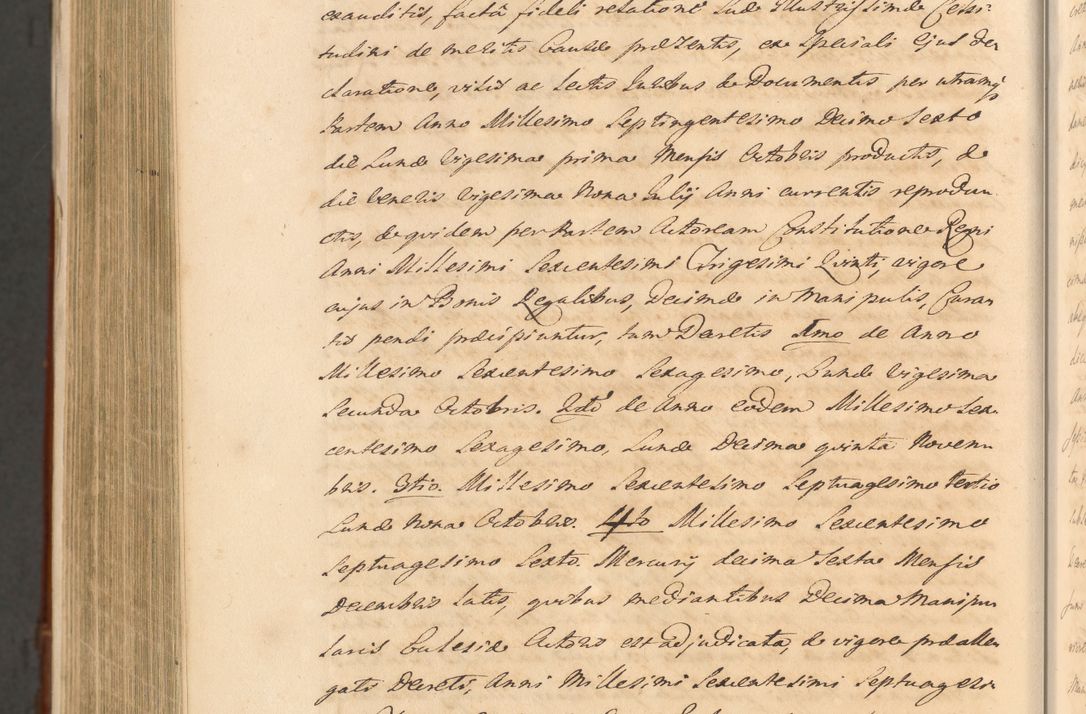 exauditis, factâ fideli relatione suae Illustrissimae Celsi-
tudini de meritis Causae praesentis, ex speciali Ejus de-
claratione, visis ac lectis Juribus & Documentis per utramqs
Partem Anno Millesimo Septingentesimo Decimo Sexto
die Lunae Vigesima prima Mensis Octobris productis, &
die Veneris Vigesima Nona Julij Anni currentis reprodu-
ctis, & quidem per Partem Actoream Constitutione Regni
Anni Millesimi Sexcentesimi Trigesimi Quinti, vigore
cujus in Bonis Regalibus, Decimae in Manipulis, Curatis
pendi praecipiuntur, tum Decretis 1mo de Anno
Millesimo Sexcentesimo Sexagesimo, Lunae Vigesima
Secunda Octobris. 2dò de Anno eodem Millesimo Sex-
centesimo Sexagesimo, Lunae Decima quinta Novem
bris. 3tio. Millesimo Sexcentesimo Septuagesimo Tertio
Lunae Nona Octobris. 4to Millesimo Sexcentesimo
Septuagesimo Sexto. Mercurij decima Sexta Mensis
Decembris latis, quibus mediantibus Decima Manipu
laris Ecclesiae Actoris est adjudicata, & vigore praealle
gati Decreti, Anni Millesimi Sexcentesimi Septuagesi-